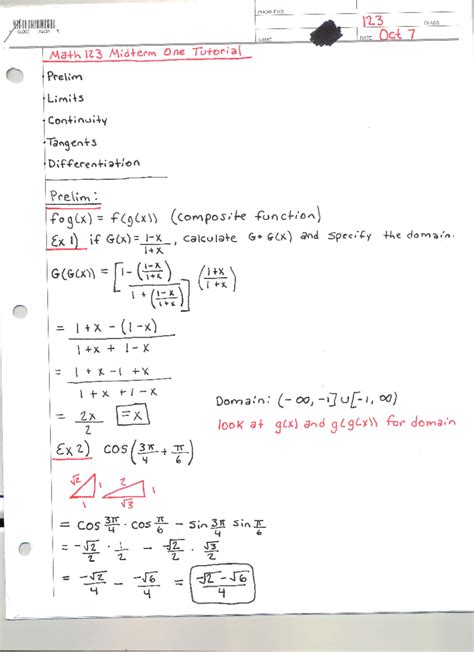 PROBLEMS
123
CLASS
DATE Oct 7
Math 123 Midterm One Tutorial
Prelim
Limits
Continuity
Tangents
Differentiation
Prelim:
fog(x) = f(g(x)) (composite function)
Ex 1) if G(x) = 1-x/1+x, calculate G∘G(x) and specify the domain.
G(G(x)) = [1-(1-x/1+x) / 1+(1-x/1+x)] (1+x/1+x)
= 1+x-(1-x) / 1+x+1-x
= 1+x-1+x / 1+x+1-x
= 2x/2 =x
Domain: (-∞,-1]∪[-1,∞)
look at g(x) and g(g(x)) for domain
Ex 2) cos(3π/4 + π/6)
√2 1 1 2 1 √3
= cos 3π/4 · cos π/6 - sin 3π/4 sin π/6
= -√2/2 · 1/2 - √2/2 · √3/2
= -√2/4 - √6/4 = -√2-√6/4